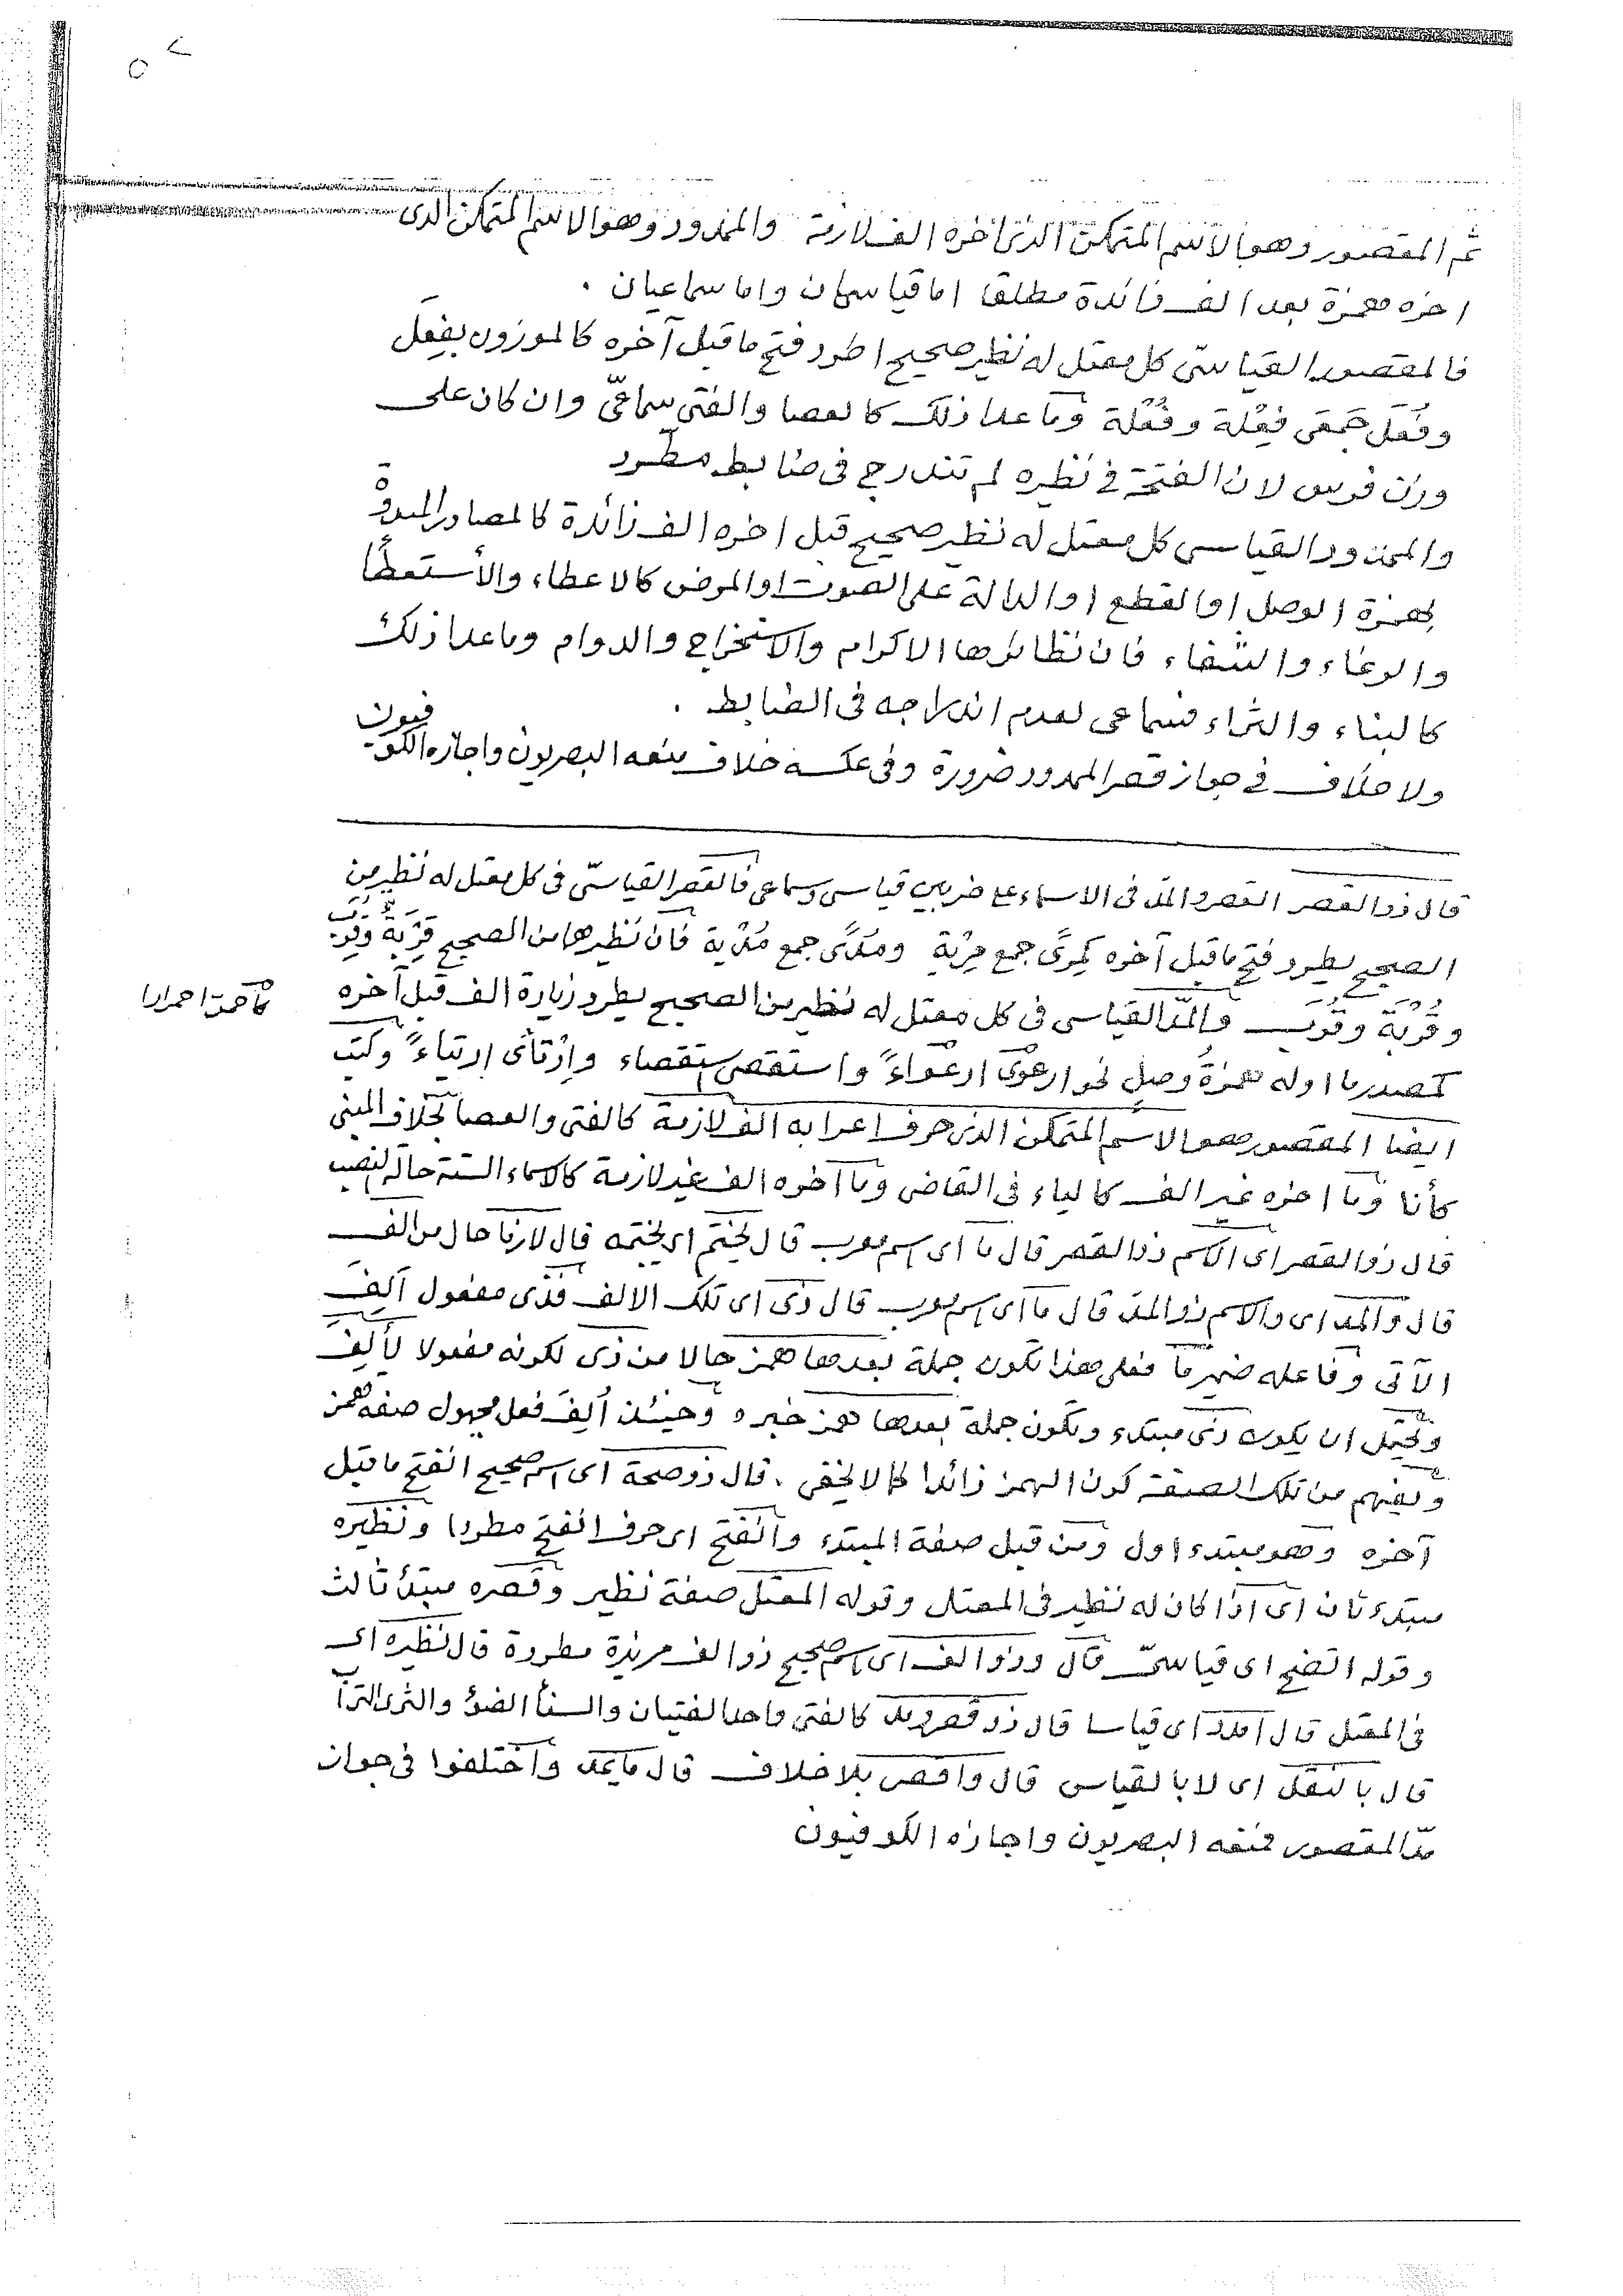 ٥٢
ثم المقصور وهو الاسم المتمكن الذى اخره الف لازمة والممدود وهو الاسم المتمكن الذى
اخره همزة بعد الف زائدة مطلقا اما قياسيان واما سماعيان .
فالمقصور القياسّى كل معتل له نظير صحيح اطرد فتح ما قبل آخره كالموزون بفِعَل
وفُعَل جمعَى فِعْلة وفُعْلة وما عدا ذلك كالعصا والفتى سماعّى وان كان على
وزن فرس لان الفتحة فى نظيره لم تندرج فى ضابط مطرد
والممدود القياسى كل معتل له نظير صحيح قبل اخره الف زائدة كالمصادر المبدوّة
بهمزة الوصل او القطع او الدالة على الصوت او المرض كالاعطاء والأستعطأ
والرغاء والشفاء فان نظائرها الاكرام والاستخراج والدوام وما عدا ذلك
كالبناء والثراء فسماعى لعدم اندراجه فى الضابط .
ولا خلاف فى جواز قصر الممدود ضرورة وفى عكسه خلاف منعه البصريون واجازه الكوفيون
قال ذو القصر القصر والمد فى الاسماء على ضربين قياسى وسماعى فالقصر القياسّى فى كل معتل له نظير من
الصحيح يطرد فتح ما قبل آخره كمِرًى جمع مِرْيةٍ ومُدًى جمع مُدْية فان نظيرهما من الصحيح قِرْبَةٌ وقِرَب
وقُرْبَة وقُرَب والمدّ القياسى فى كل معتل له نظير من الصحيح يطرد زيادة الف قبل آخره
كأحمرّ احمرارا
كمصدر ما اوله همزةُ وصلٍ نحو ارعوى ارعواءً واستقصى استقصاء وارْتأى ارتياءً وكتب
ايضا المقصور هو الاسم المتمكن الذى حرف اعرابه الف لازمة كالفتى والعصا بخلاف المبنى
كأنا وما اخره غير الف كالياء فى القاضى وما آخره الف غير لازمة كالاسماء الستة حالة النصب
قال ذو القصر اى الاسم ذو القصر قال ما اى اسم معرب قال يختم اى يختمه قال لازما حال من الف
قال والمد اى والاسم ذو المد قال ما اى اسم معرب قال ذى اى تلك الالف فذى مفعول اَلِفَ
الآتى وفاعله ضمير ما فعلى هذا تكون جملة بعدها همز حالا من ذى لكونه مفعولا لأَلِفَ
ويحتمل ان يكون ذى مبتدء وتكون جملة بعدها همز خبره وحينئذ اُلِفَ فعل مجهول صفة همز
ويفهم من تلك الصفة كون الهمز زائدا كما لا يخفى . قال ذو صحة اى اسم صحيح انفتح ما قبل
آخره وهو مبتدء اول ومن قبل صفة المبتدء وانفتح اى حرف انفتح مطردا ونظيره
مبتدء ثان اى اذا كان له نظير فى المعتل وقوله المعتل صفة نظير وقصره مبتدأ ثالث
وقوله اتضح اى قياسىّ قال وذو الف اى اسم صحيح ذو الف مزيدة مطردة قال نظيره اى
فى المعتل قال امدد اى قياسا قال ذو قصر ومد كالفتى واحد الفتيان والسنأ الضوُ والثرى التراب
قال بالنقل اى لا بالقياس قال واقصر بلا خلاف قال ما يمد واختلفوا فى جواز
مدّ المقصور فمنعه البصريون واجازه الكوفيون